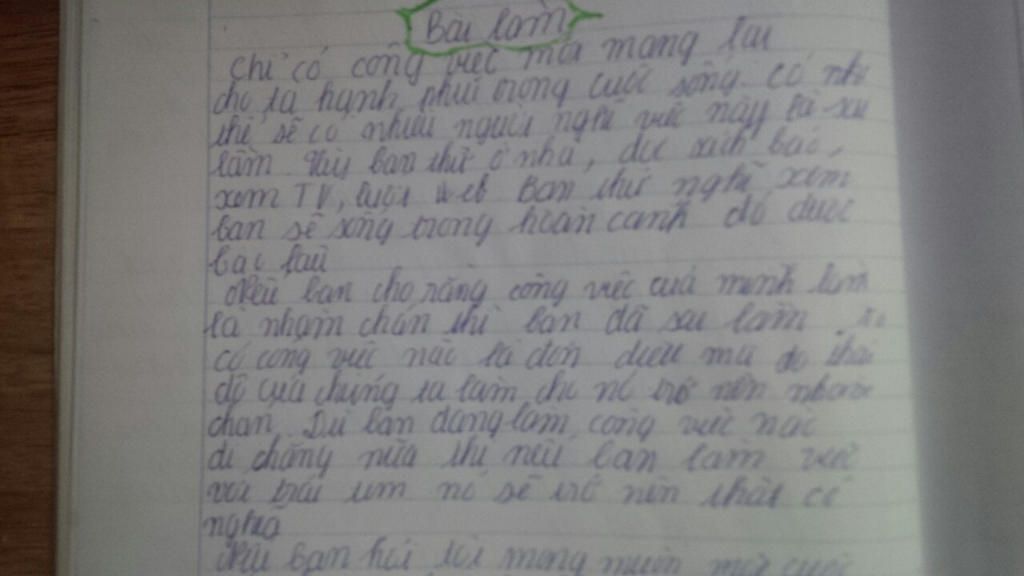 Bài làm
Chỉ có công việc mới mang lại
cho ta hạnh phúc trong cuộc sống. Có
thì sẽ có nhiều người nghĩ việc này là sai
lầm. Hãy bạn thử ở nhà, đọc sách báo,
xem TV, lướt Web Bạn thử nghĩ xem
bạn sẽ sống trong hoàn cảnh đó được
bao lâu
Nếu bạn cho rằng công việc của mình làm
là nhàm chán thì bạn đã sai lầm.
có công việc nào là đơn điệu mà do thái
độ của chúng ta làm cho nó trở nên nhàm
chán. Dù bạn đang làm công việc nào
đi chăng nữa thì nếu bạn làm việc
với trái tim nó sẽ trở nên thật có
nghĩa
Nếu bạn hỏi tôi mong muốn một cuộc